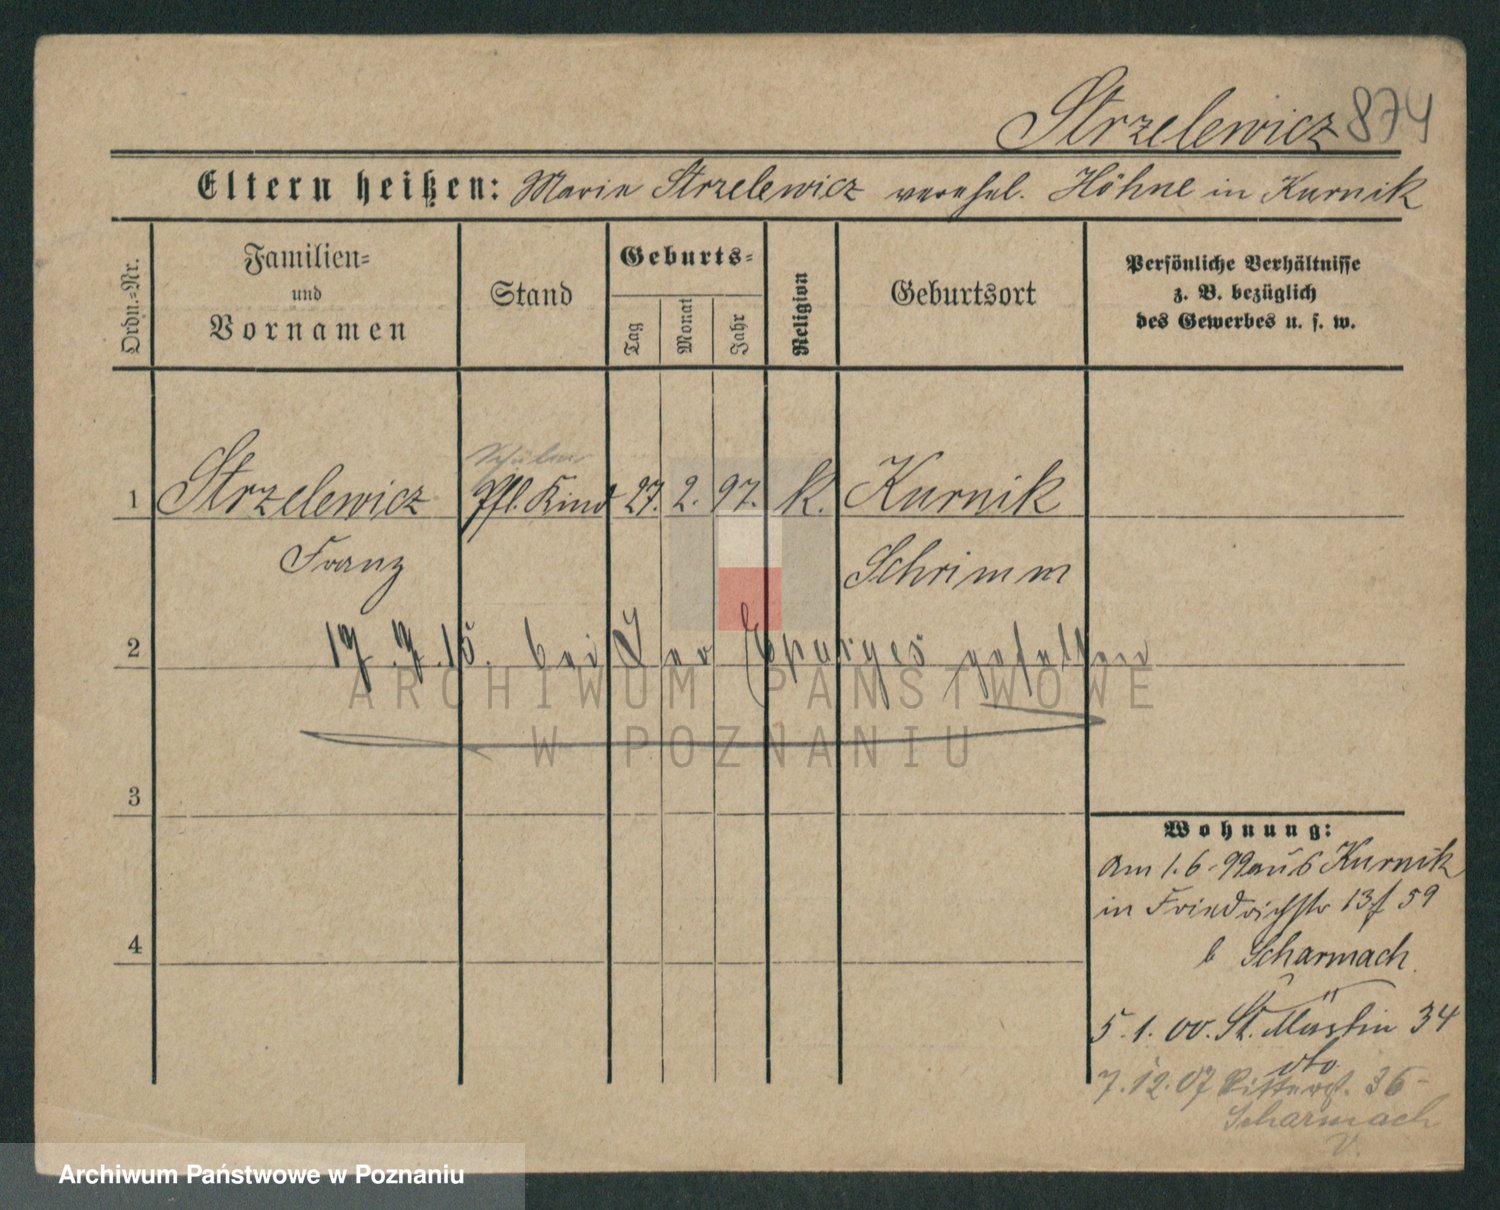 Strzelewicz 874
Eltern heißen: Marie Strzelewicz verehel. Höhne in Kurnik
Ordn.-Nr.
Familien- und Vornamen
Stand
Geburts-
Tag
Monat
Jahr
Religion
Geburtsort
Persönliche Verhältnisse
z. B. bezüglich
des Gewerbes u. s. w.
Schüler
1 Strzelewicz Pfl. Kind 27. 2. 97. k. Kurnik
Franz Schrimm
2
17.7.15. bei Les Eparges gefallen
ARCHIWUM PAŃSTWOWE
W POZNANIU
3
4
Wohnung:
Am 1.6.99 aus Kurnik
in Friedrichstr 13 f 59
b Scharmach
5.1.00. St. Martin 34
dto
7.12.07 Ritterst. 36
Scharmach
V.
Archiwum Państwowe w Poznaniu